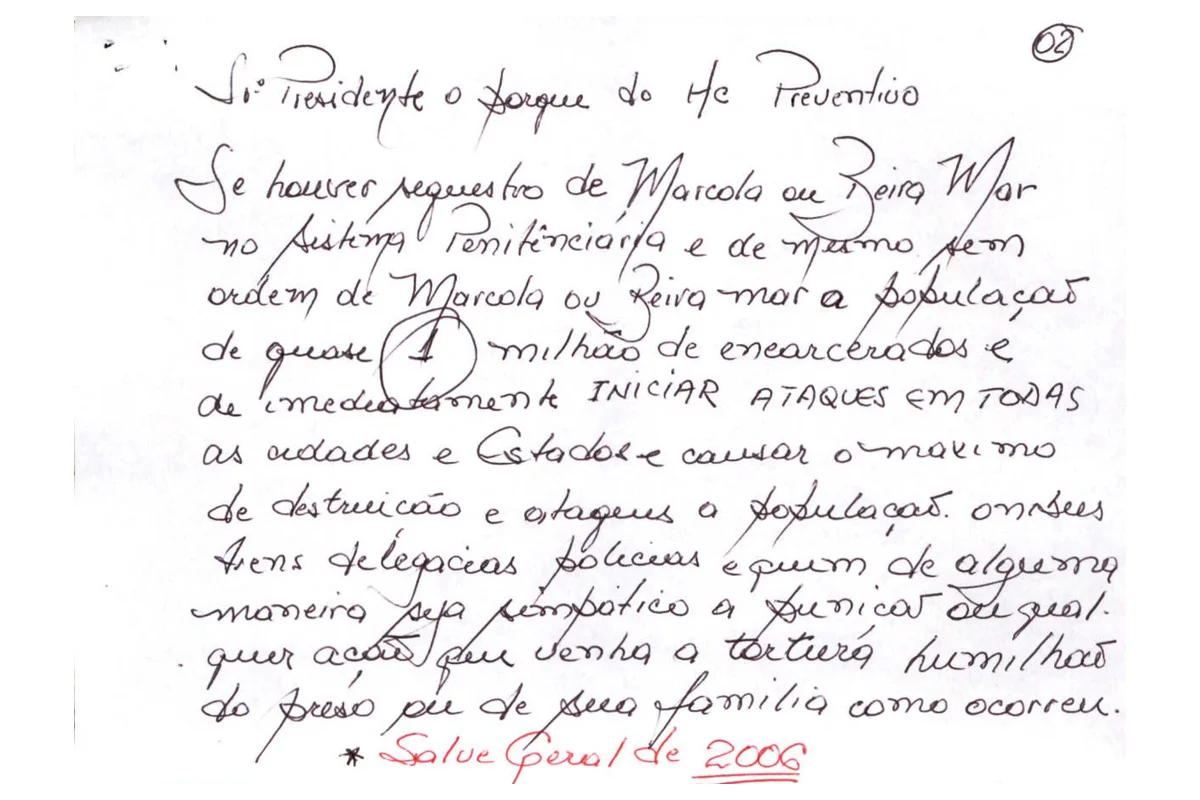 02
Sr. Presidente o porque do H/c Preventivo
Se houver sequestro de Marcola ou Beira Mar
no sistema Penitênciária e de mesmo sem
ordem de Marcola ou Beira-mar a populaçaõ
de quase 1 milhão de encarcerados e
de imediatamente INICIAR ATAQUES EM TODAS
as cidades e Estados e causar o maximo
de destruicão e ataques a populaçaõ. onibus
trens delegacias policias e quem de alguma
maneira seja simpático a punicaõ ou qual.
quer acaõ que venha a tortura humilhaõ
do preso ou de sua familia como ocorreu.
* Salve Geral de 2006